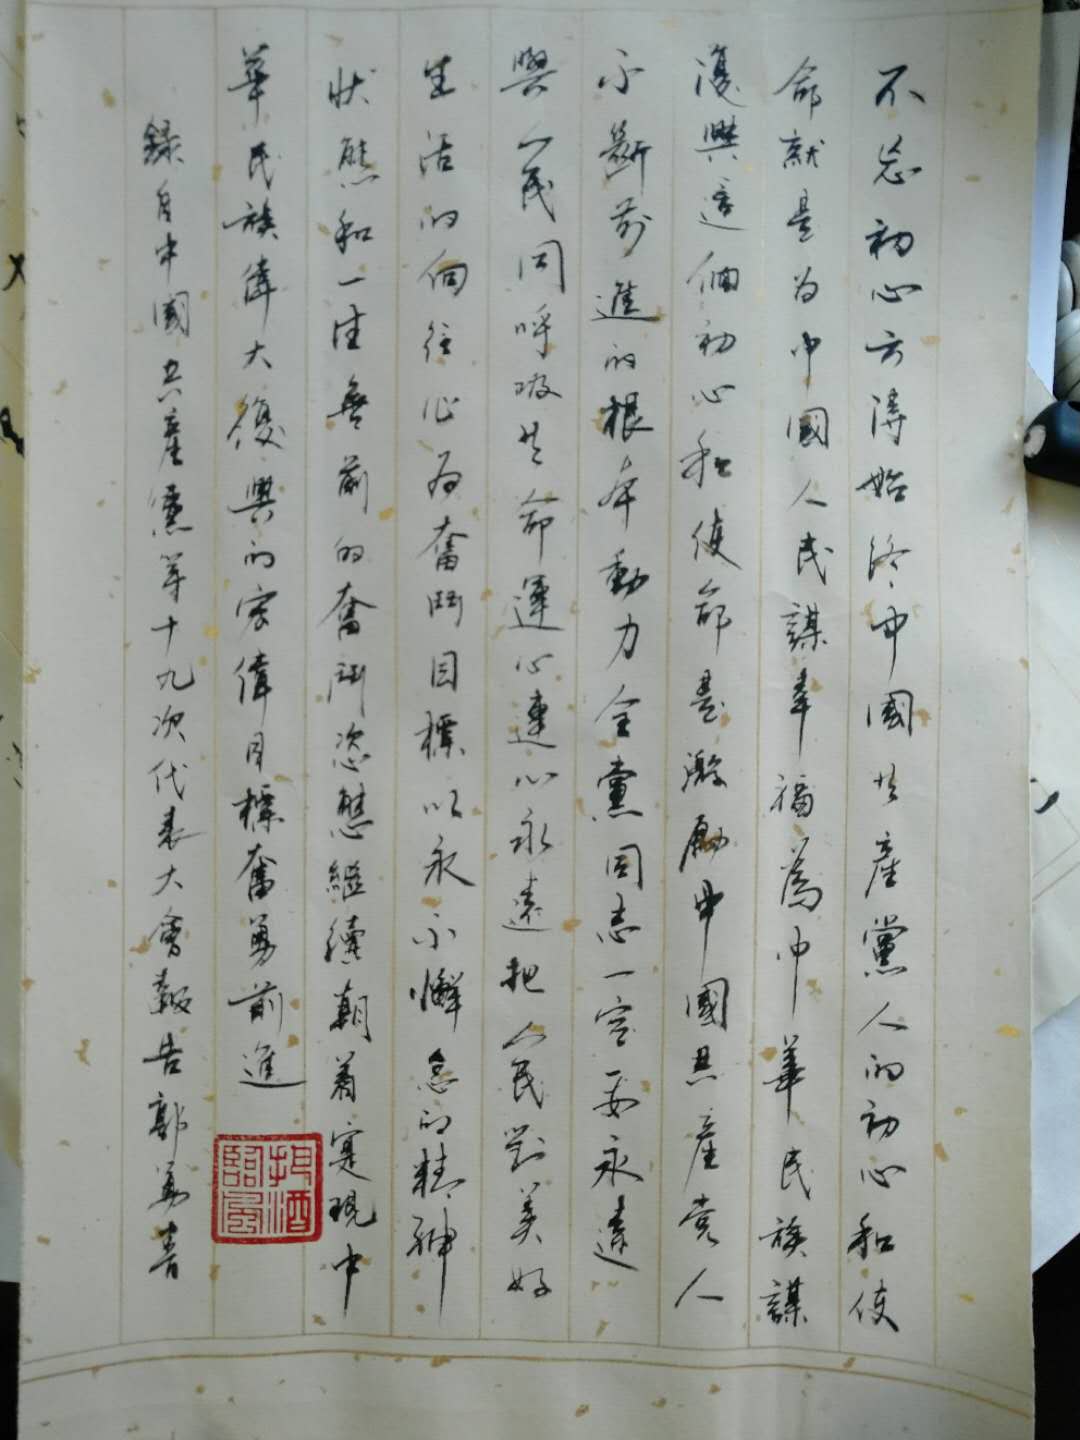 不忘初心方得始終中國共產黨人的初心和使
命就是为中國人民謀幸福為中華民族謀
復興這個初心和使命是激勵中國共產党人
不斷前進的根本動力全黨同志一定要永遠
與人民同呼吸共命運心連心永遠把人民對美好
生活的向往作为奮鬥目標以永不懈怠的精神
状態和一往無前的奮鬥姿態繼續朝着实現中
華民族偉大復興的宏偉目標奮勇前進
錄自中國共產黨第十九次代表大會報告郭勇書